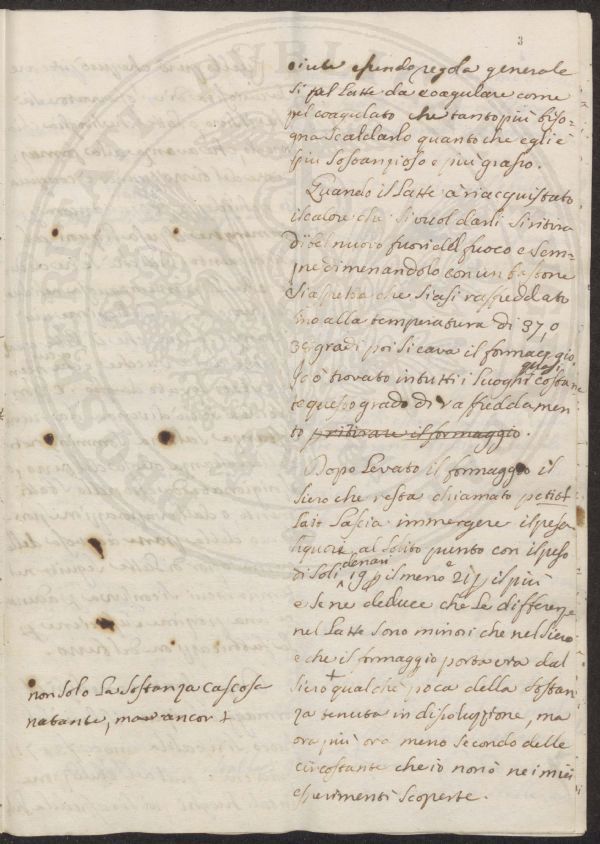 3
essendo regola generale
si pel Latte da coagulare come
pel coagulato che tanto più biso-
gna Scaldarlo quanto che egli è
più Sostanzioso e più grasso.
Quando il Latte à riacquistato
il calore che si vuol darli si ritira
di bel nuovo fuori del fuoco e Sem-
pre dimenandolo con un bastone
si aspetta che siasi raffreddato
sino alla temperatura di 37, o
38 gradi poi si cava il formaggio.
ò trovato in tutti i Luoghi quasi costan
te questo grado di raffreddamen
to p ritirare il formaggio.
Dopo Levato il formaggio il
siero che resta chiamato petist
Lait Lascia immergere il pesa
liquori al Solito punto con il peso
di Soli denari 19 p il meno e 21 p il più
e se ne deduce che Le differenze
nel Latte sono minori che nel siero
e che il formaggio porta via dal
siero + qualche poca della Sostan
za tenuta in dissoluzione, ma
ora più ora meno Secondo delle
circostanze che io non ò nei miei
esperimenti Scoperte.
non Solo La Sostanza Cascosa
natante, ma ancor +